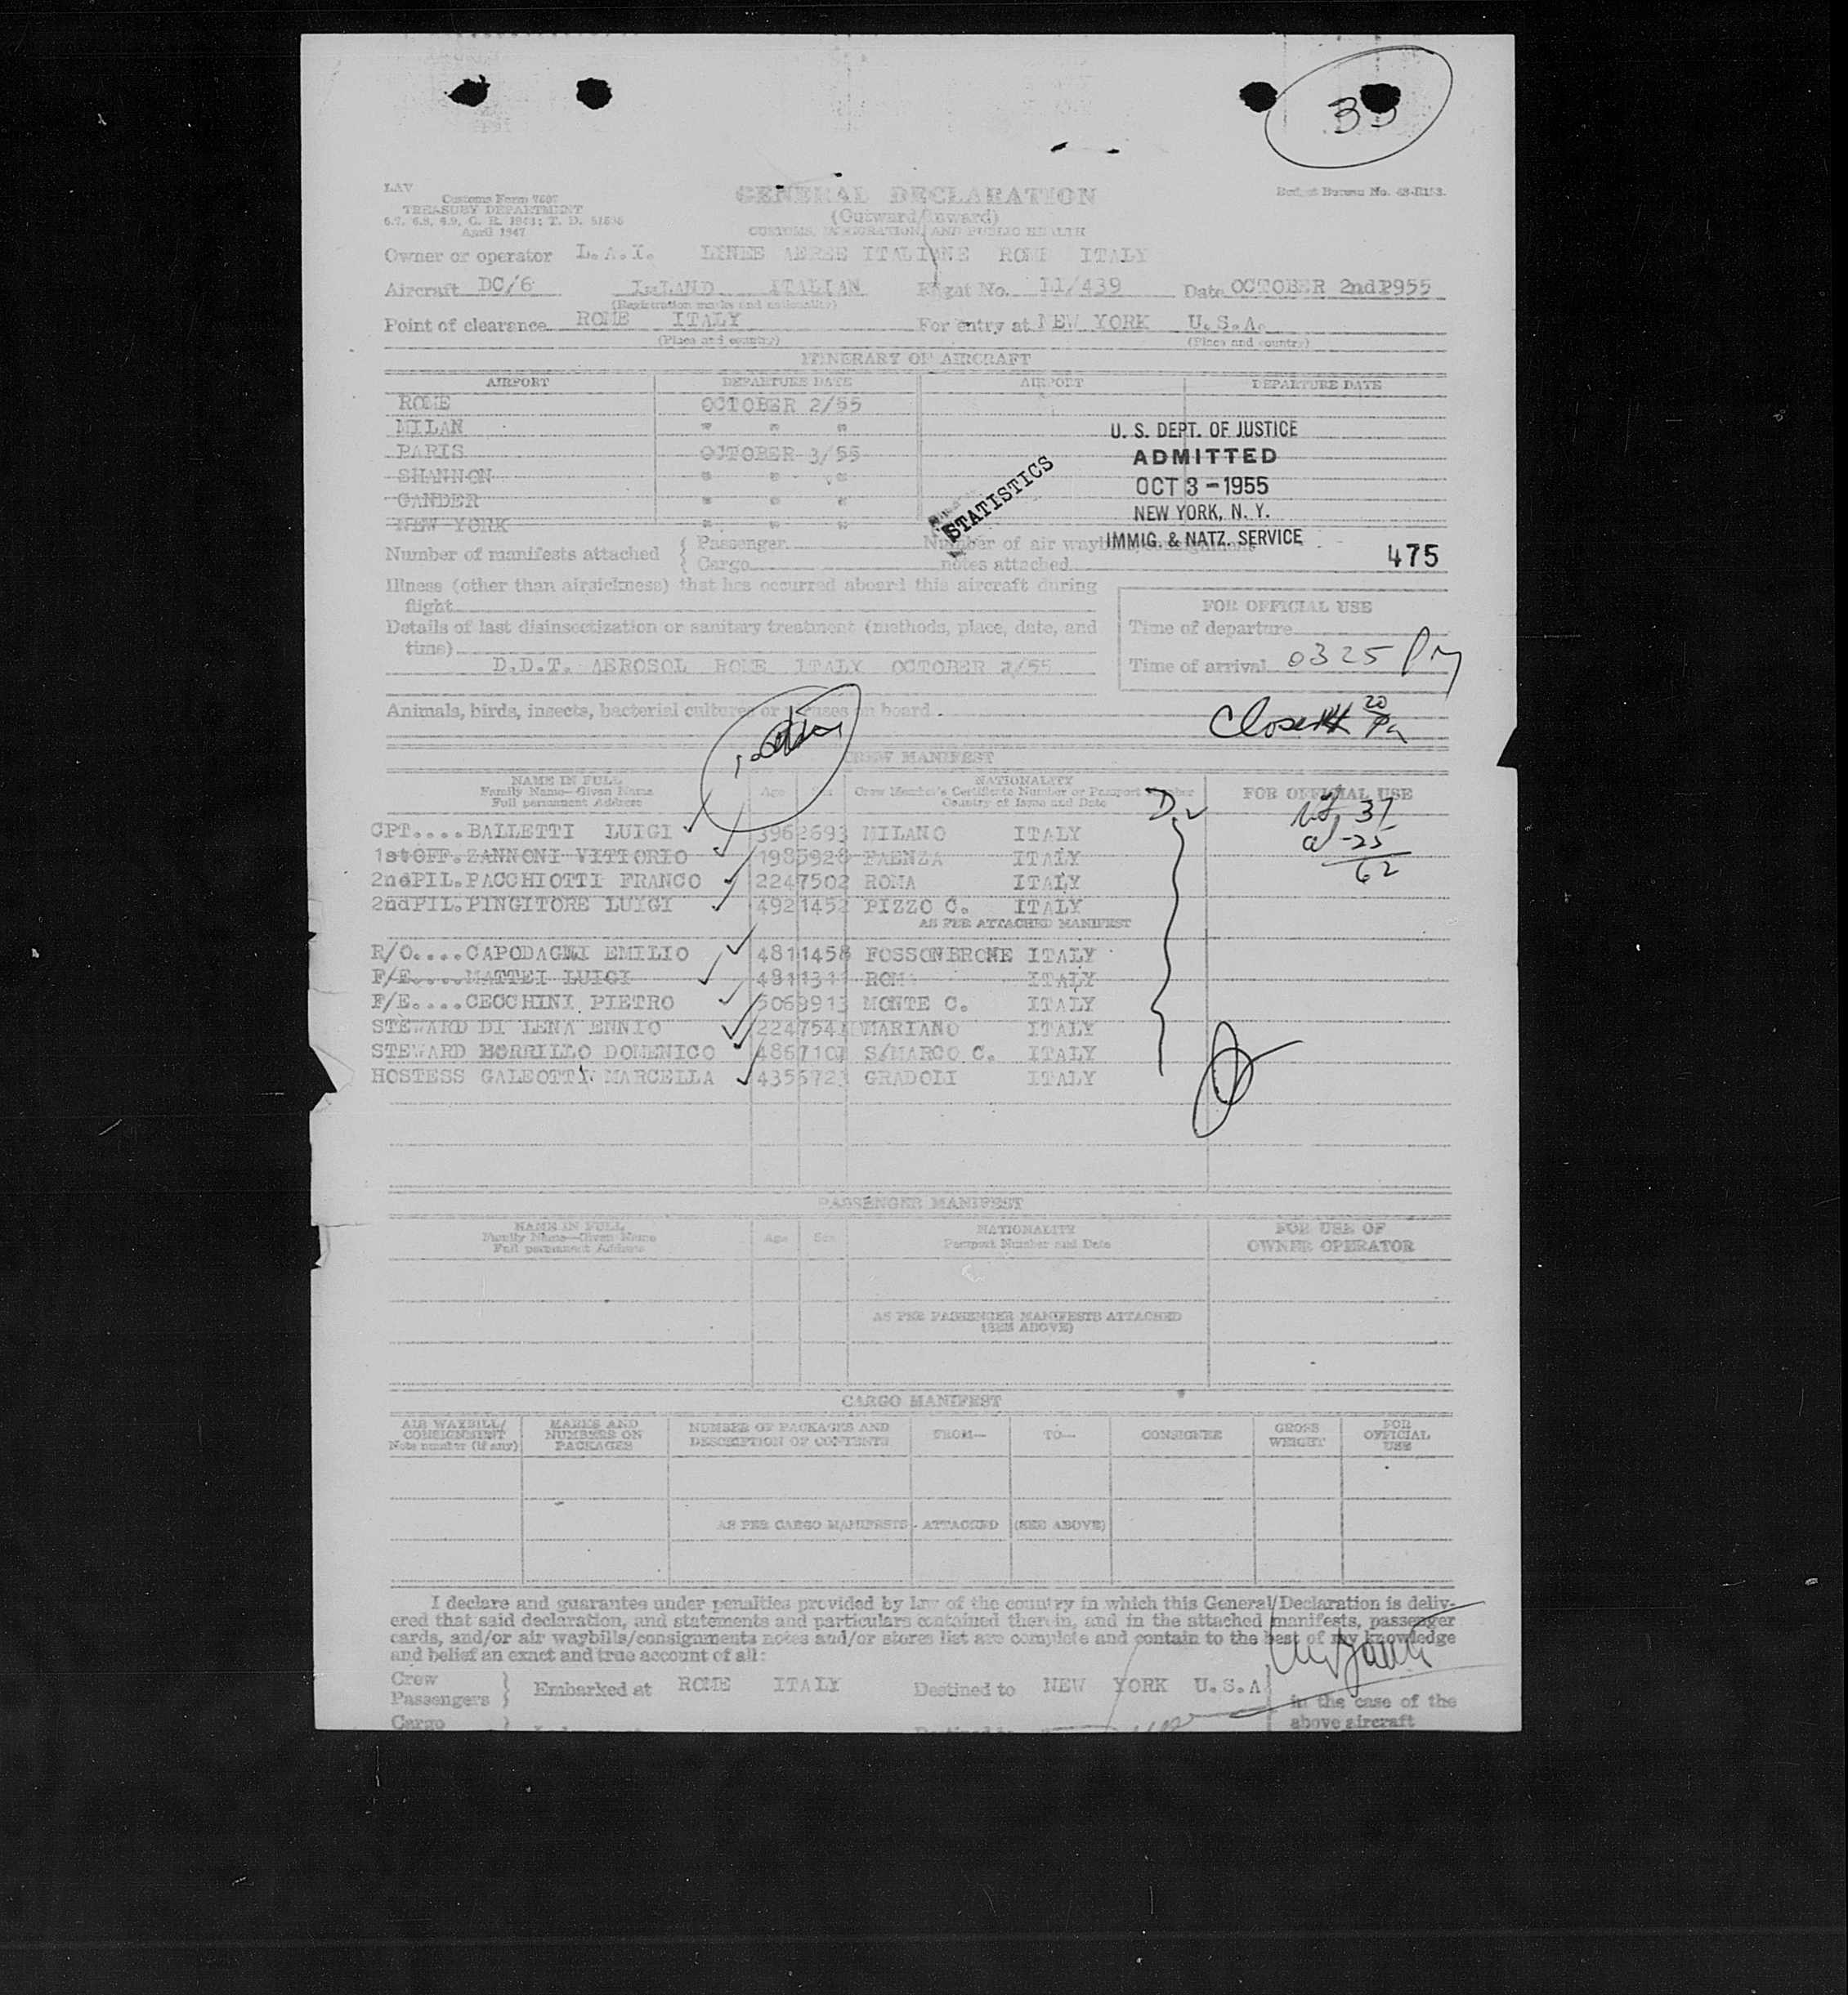 33
LAV
Customs Form 7507
TREASURY DEPARTMENT
April 1947
GENERAL DECLARATION
(Outward/Inward)
CUSTOMS, IMMIGRATION, AND PUBLIC HEALTH
Budget Bureau No.
Owner or operator L.A.I. LINEE AEREE ITALIANE ROME ITALY
Aircraft DC/6 I-LAND ITALIAN Flight No. 11/439 Date OCTOBER 2nd 1955
(Registration marks and nationality)
Point of clearance ROME ITALY For entry at NEW YORK U.S.A.
(Place and country) (Place and country)
ITINERARY OF AIRCRAFT
AIRPORT DEPARTURE DATE AIRPORT DEPARTURE DATE
ROME OCTOBER 2/55
MILAN " " "
PARIS OCTOBER 3/55
SHANNON " " "
GANDER " " "
NEW YORK " " "
U. S. DEPT. OF JUSTICE
ADMITTED
OCT 3 - 1955
NEW YORK, N. Y.
IMMIG. & NATZ. SERVICE
475
STATISTICS
Number of manifests attached { Passenger Number of air waybills/consignment
{ Cargo notes attached
Illness (other than airsickness) that has occurred aboard this aircraft during
flight
Details of last disinsectization or sanitary treatment (methods, place, date, and
time)
D.D.T. AEROSOL ROME ITALY OCTOBER 2/55
FOR OFFICIAL USE
Time of departure
Time of arrival 0325 PM
Animals, birds, insects, bacterial cultures or viruses on board
CREW MANIFEST
NAME IN FULL
Family Name—Given Name
Full permanent Address
Age
NATIONALITY
Crew Member's Certificate Number or Passport Number
Country of Issue and Date
FOR OFFICIAL USE
37
25
62
CPT....BALLETTI LUIGI 3962693 MILANO ITALY
1stOFF.ZANNONI VITTORIO 1985928 FAENZA ITALY
2ndPIL.PACCHIOTTI FRANCO 2247502 ROMA ITALY
2ndPIL.PINGITORE LUIGI 4921452 PIZZO C. ITALY
AS PER ATTACHED MANIFEST
R/O....CAPODAGLI EMILIO 4811458 FOSSOMBRONE ITALY
F/E....MATTEI LUIGI 4811311 ROMA ITALY
F/E....CECCHINI PIETRO 5069913 MONTE C. ITALY
STEWARD DI LENA ENNIO 2247541 MARIANO ITALY
STEWARD BORRILLO DOMENICO 4867101 S/MARCO C. ITALY
HOSTESS GALEOTTI MARCELLA 4356723 GRADOLI ITALY
PASSENGER MANIFEST
NAME IN FULL
Family Name—Given Name
Full permanent Address
Age Sex
NATIONALITY
Passport Number and Date
FOR USE OF
OWNER OPERATOR
AS PER PASSENGER MANIFESTS ATTACHED
(SEE ABOVE)
CARGO MANIFEST
AIR WAYBILL/
CONSIGNMENT
Note number (if any)
MARKS AND
NUMBERS ON
PACKAGES
NUMBER OF PACKAGES AND
DESCRIPTION OF CONTENTS
FROM— TO— CONSIGNEE
GROSS
WEIGHT
FOR
OFFICIAL
USE
AS PER CARGO MANIFESTS - ATTACHED (SEE ABOVE)
I declare and guarantee under penalties provided by law of the country in which this General Declaration is deliv-
ered that said declaration, and statements and particulars contained therein, and in the attached manifests, passenger
cards, and/or air waybills/consignments notes and/or stores list are complete and contain to the best of my knowledge
and belief an exact and true account of all:
Crew
Passengers } Embarked at ROME ITALY Destined to NEW YORK U.S.A
in the case of the
Cargo
above aircraft